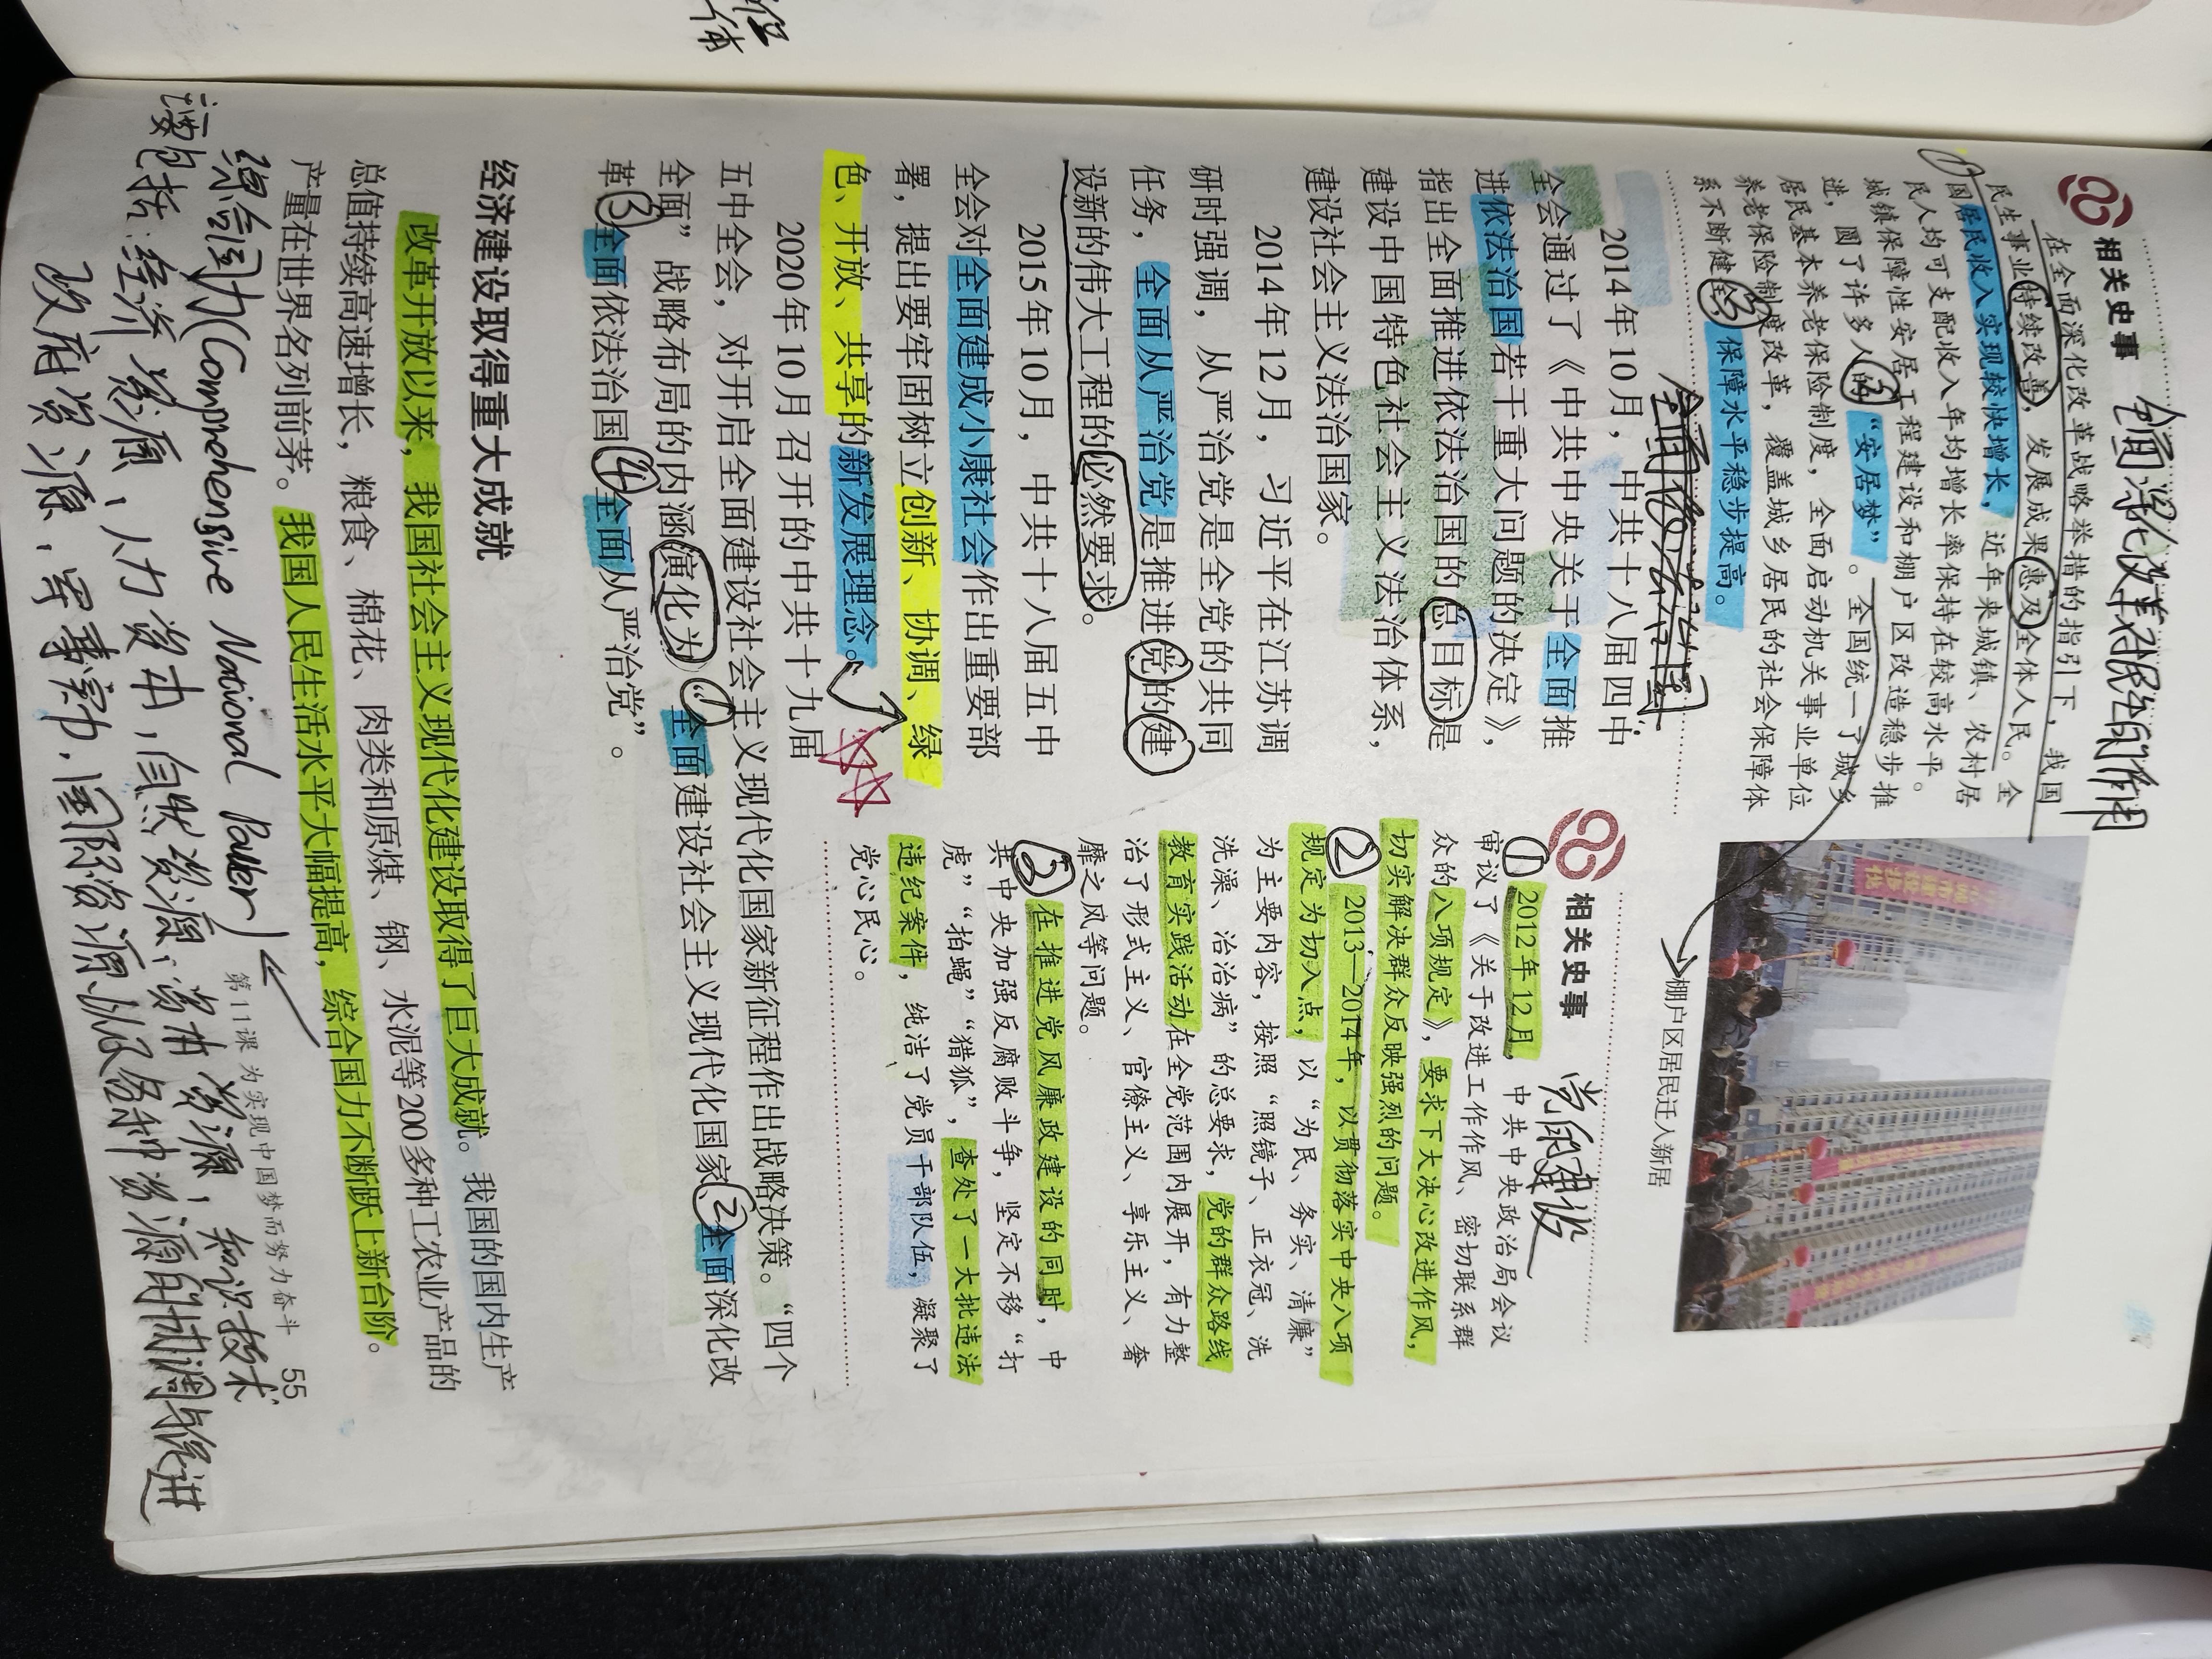 相关史事 全面深化改革在民生方面的作用
在全面深化改革战略举措的指引下，我国
民生事业持续改善，发展成果惠及全体人民。全
国居民收入实现较快增长，近年来城镇、农村居
民人均可支配收入年均增长率保持在较高水平。
城镇保障性安居工程建设和棚户区改造稳步推
进，圆了许多人的②“安居梦”。全国统一了城乡
居民基本养老保险制度，全面启动机关事业单位
养老保险制度改革，覆盖城乡居民的社会保障体
系不断健全，③保障水平稳步提高。
棚户区居民迁入新居
全面依法治国
2014年10月，中共十八届四中
全会通过了《中共中央关于全面推
进依法治国若干重大问题的决定》，
指出全面推进依法治国的总目标是
建设中国特色社会主义法治体系，
建设社会主义法治国家。
2014年12月，习近平在江苏调
研时强调，从严治党是全党的共同
任务，全面从严治党是推进党的建
设新的伟大工程的必然要求。
2015年10月，中共十八届五中
全会对全面建成小康社会作出重要部
署，提出要牢固树立创新、协调、绿
色、开放、共享的新发展理念。
相关史事 党的建设
①2012年12月，中共中央政治局会议
审议了《关于改进工作作风、密切联系群
众的八项规定》，要求下大决心改进作风，
切实解决群众反映强烈的问题。
②2013—2014年，以贯彻落实中央八项
规定为切入点，以“为民、务实、清廉”
为主要内容，按照“照镜子、正衣冠、洗
洗澡、治治病”的总要求，党的群众路线
教育实践活动在全党范围内展开，有力整
治了形式主义、官僚主义、享乐主义、奢
靡之风等问题。
③在推进党风廉政建设的同时，中
共中央加强反腐败斗争，坚定不移“打
虎”“拍蝇”“猎狐”，查处了一大批违法
违纪案件，纯洁了党员干部队伍，凝聚了
党心民心。
2020年10月召开的中共十九届
五中全会，对开启全面建设社会主义现代化国家新征程作出战略决策。“四个
全面”战略布局的内涵演化为“①全面建设社会主义现代化国家、②全面深化改
革、③全面依法治国、④全面从严治党”。
经济建设取得重大成就
改革开放以来，我国社会主义现代化建设取得了巨大成就。我国的国内生产
总值持续高速增长，粮食、棉花、肉类和原煤、钢、水泥等200多种工农业产品的
产量在世界名列前茅。我国人民生活水平大幅提高，综合国力不断跃上新台阶。
第11课 为实现中国梦而努力奋斗 55
综合国力(Comprehensive National Power)
包括：经济资源、人力资本，自然资源；资本资源；知识技术
政府资源，军事实力，国际资源以及各种资源的协调与促进